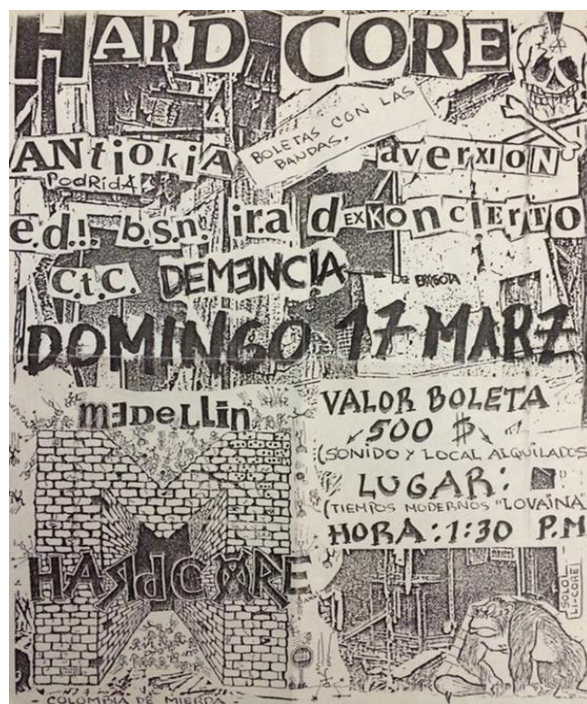 HARD CORE
ANtiokiA
PODRIDA
BOLETAS CON LAS
BANDAS.
aVerXION
e.d.i. b.s.n. ir.a dEXKonCIERTO
C.t.C. DEMENCIA
DE BOGOTA
DOMINGO 17 MARZ
mEDELLin
HARDCORE
- COLOMBIA DE MIERDA -
VALOR BOLETA
500 $
(SONIDO Y LOCAL ALQUILADOS
LUGAR:
(TIEMPOS MODERNOS "LOVAINA
HORA: 1:30 P.M